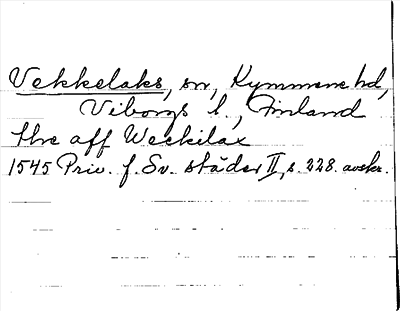 Vekkelaks, sn, Kymmene hd,
Viborgs l., Finland
thre aff Weckilax
1545 Priv. f. Sv. städer II, s. 228. avskr.